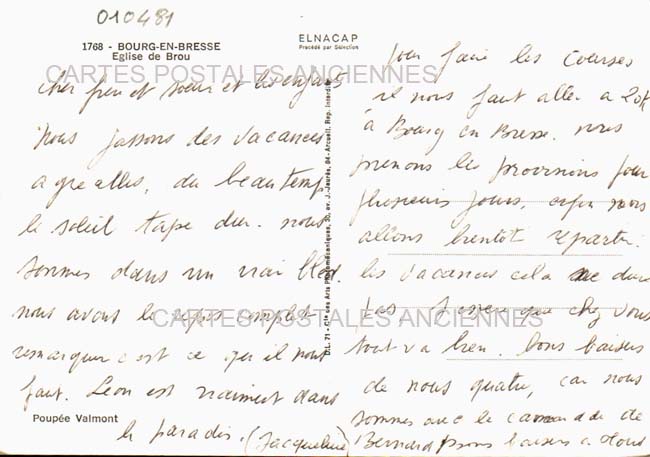 010481
1768 - BOURG-EN-BRESSE
Eglise de Brou
ELNACAP
Précédé par Sélection
CARTES POSTALES ANCIENNES
cher frere et sœur et les enfants
nous passons des vacances
agreables, du beau temps
le soleil tape dur. nous
sommes dans un vrai bled.
nous avons le repos complet
remarquer c'est ce qu'il nous
faut. Léon est vraiment dans
le paradis. (Jacqueline)
Poupée Valmont
D.L. 71 - Cie des Arts Photomécaniques, av. J.-Jaurès, 94-Arcueil. Rep. Interdite
pour faire les courses
il nous faut aller a 20K
à Bourg en Bresse. nous
prenons les provisions pour
plusieurs jours. enfin nous
allons bientôt repartir.
les vacances cela ne dure
pas. J'espere que chez vous
CARTES POSTALES ANCIENNES
tout va bien. bons baisers
de nous quatre, car nous
sommes avec le camarade de
Bernard bons baisers a tous